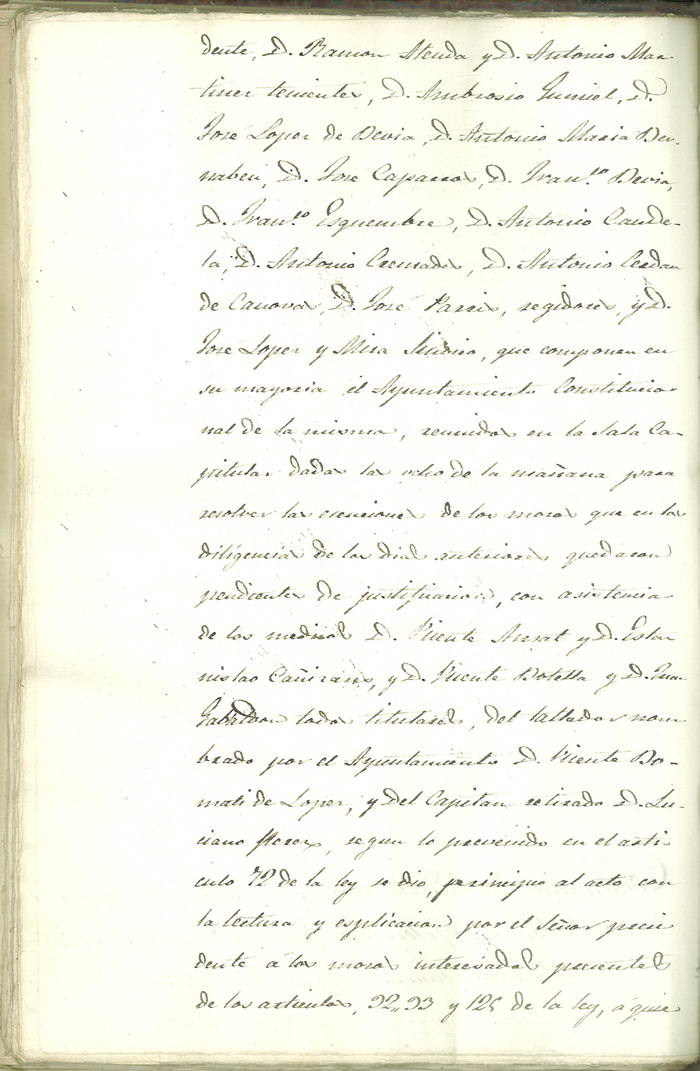 dente, D. Ramon Atenda y D. Antonio Mar-
tinez tenientes, D. Ambrosio Guniel, D.
José Lopez de Devia, D. Antonio Maria Ber-
nabeu, D. Jose Caparros, D. Fran.co Devia,
D. Fran.co Esquembre, D. Antonio Cande-
la, D. Antonio Cremades, D. Antonio Cerdan
de Canovas, D. José Parres, regidores, y D.
José Lopez y Mira Sindico, que componen en
su mayoria el Ayuntamiento Constitucio-
nal de la misma, reunidos en la Sala Ca-
pitular dadas las ocho de la mañana para
resolver las esenciones de los mozos que en las
diligencias de los dias anteriores quedaron
pendientes de justificacion, con asistencia
de los medicos D. Vicente Ansat y D. Esta-
nislao Cañizares, y D. Vicente Botella y D. Juan
Gabaldon todos titulares, del tallador nom
brado por el Ayuntamiento D. Vicente Bo-
mati de Lopez, y del Capitan retirado D. Lu-
ciano Perez, segun lo prevenido en el arti
culo 72 de la ley se dio, principio al acto con
la lectura y esplicacion por el Señor presi
dente á los mozos interesados presentes
de los articulos, 92, 93 y 125 de la ley, á quie